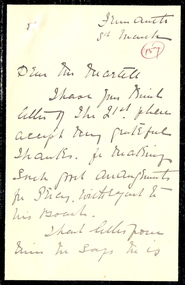 8th March
157
Dear Mr Martell
I have your kind
letter of the 21st. please
accept my grateful
thanks. for making
such good arrangements
for with regard to
his Book.
I had letter from
him he says he is